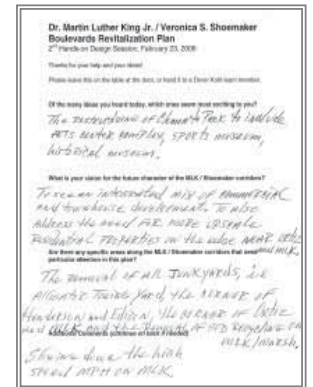 Dr. Martin Luther King Jr. / Veronica S. Shoemaker
Boulevards Revitalization Plan
2nd Hands-on Design Session, February 23, 2006
Thanks for your help and your ideas!
Please leave this on the table at the door, or hand it to a Dover Kohl team member.
Of the many ideas you heard today, which ones seem most exciting to you?
The of Park to include
arts center complex, sports museum,
historical museum.
What is your vision for the future character of the MLK / Shoemaker corridors?
To see an integrated mix of commercial
and townhouse development. To also
address the need for more upscale
residential properties on the edge near Ortiz
and MLK.
Are there any specific areas along the MLK / Shoemaker corridors that need
particular attention in this plan?
The removal of all junkyards, i.e
Alligator Towing Yard, the corner of
Henderson and Edison, the corner of Ortiz
and MLK and the removal of Recycling on
MLK/Marsh.
Additional Comments (continue off back if needed)
Slowing down the high
speed MPH on MLK.